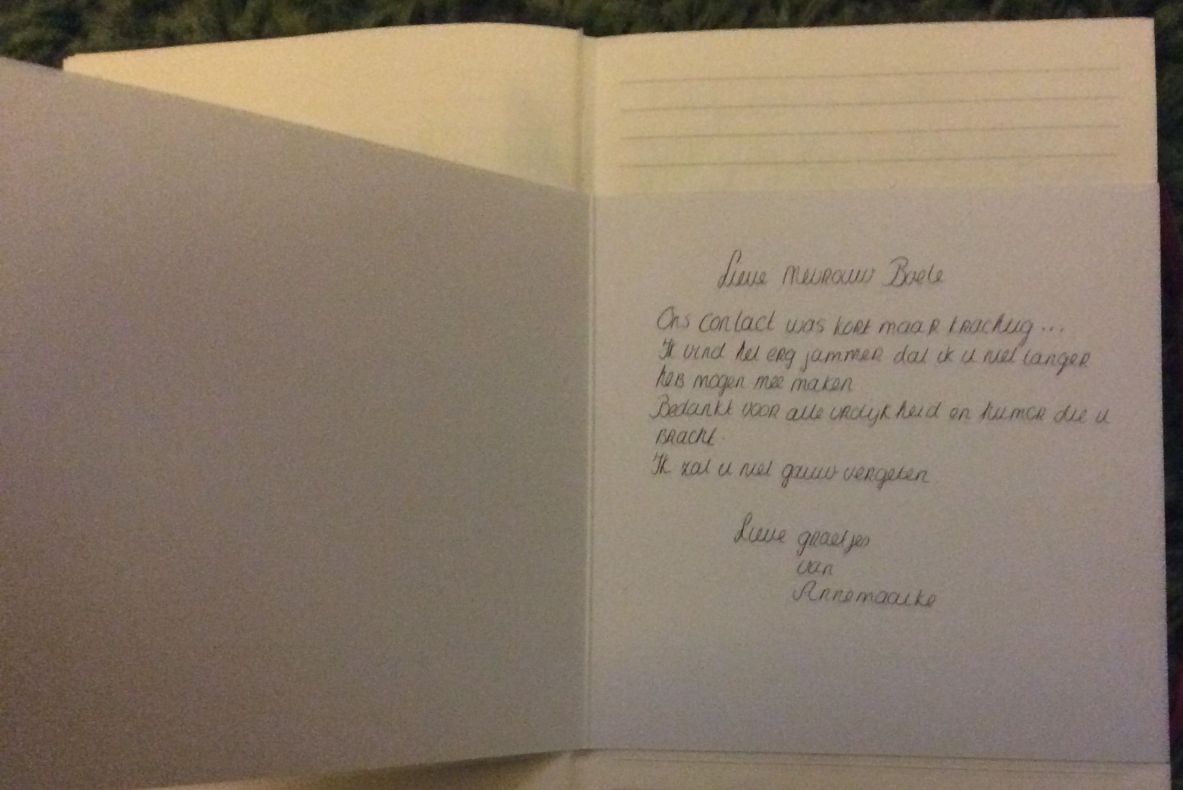 Lieve mevrouw Boele
Ons contact was kort maar krachtig...
Ik vind het erg jammer dat ik u niet langer
heb mogen mee maken
Bedankt voor alle vrolijkheid en humor die u
bracht.
Ik zal u niet gauw vergeten
Lieve groetjes
van
Annemaaike